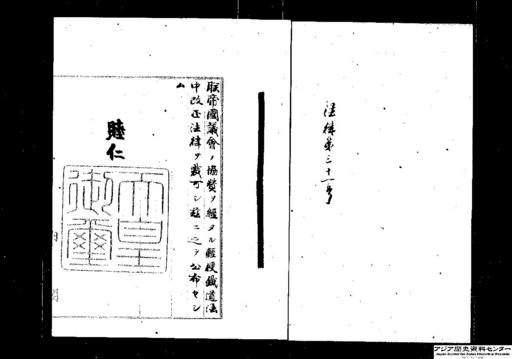 法律第三十一號
朕帝國議會ノ協贊ヲ經タル輕便鐵道法
中改正法律ヲ裁可シ茲ニ之ヲ公布セシ
ム
睦仁
天皇
御璽
アジア歴史資料センター
Japan Center for Asian Historical Records